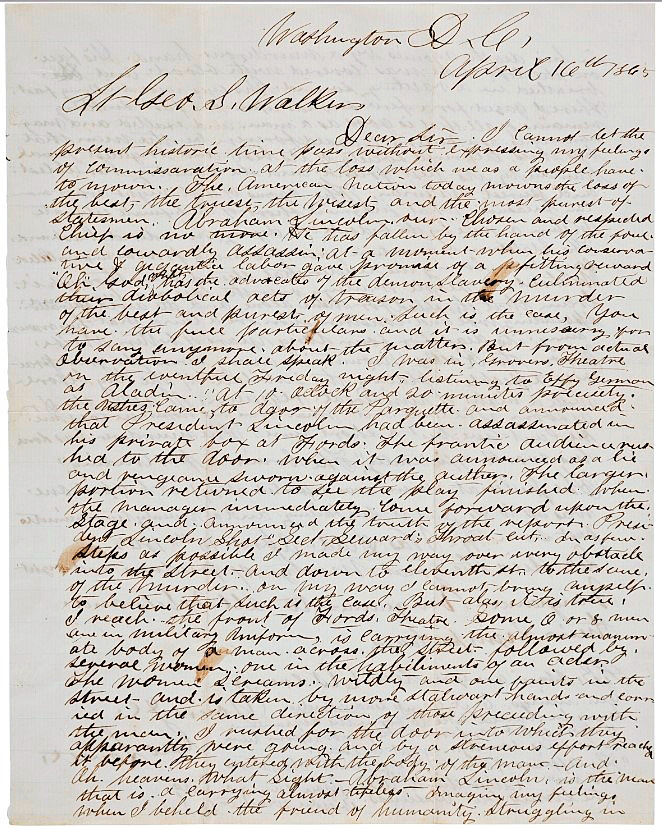 Washington D. C,
April 16th 1865
Lt Geo. S. Walker
Dear Sir. I cannot let the
present historic time pass without expressing my feelings
of commissaration, at the loss which we as a people have
to mourn. The, American Nation today mourns the loss of
the best, the truest, the wisest, and the most purest of
statesmen. Abraham Lincoln our Chosen and respected
Chief is no more. He has fallen by the hand of the foul
and cowardly assassin, at a moment when his conserva
tive & gigantic labor gave promise of a fitting reward
Oh. God, has the advocates of the demon Slavery. Culminated
their diabolical acts of treason in the murder
of the best and purest of men. Such is the case, You
have the full particulars and it is unnessery for
to say anymore about the matter. But from actual
observation I shall speak I was in Grovers, Theatre
on the eventful Friday night. listening to Effy German
as Aladin. at 10 oclock and 20 minutes precisely.
the came to door of the Parquette and announced
that President Lincoln had been assassinated in
his private box at Fords. The frantic audience rus
hed to the door. when it was announced as a lie
and vengeance sworn against the author. The larger
portion returned to see the play finished. When
the manager immediately come forward upon the
Stage and announced the truth of the report. Presi
dent Lincoln Shot Sect. Seward's throat cut. In as few
steps as possible I made my way over every obstacle
into the Street. and down to eleventh st. to the scene
of the murder. on my way I cannot bring myself
to believe that such is the case. But alas, it is true.
I reach the front of Fords Theatre. Some 6 or 8 men
are in military Uniform, is carrying the almost inanim
ate body of a man across the street followed by
several women, one in the habiliments of an actor.
The women Screams. wildly and one faints in the
street. and is taken by more stalwart hands and carr
ied in the same direction of those preceding with
the man. I rushed for the door into which they
apparantly were going and by a strenous effort reached
it before they entered with the body of the man. And
Oh. heavens. What Sight. Abraham Lincoln. is the man
that is a carrying almost lifeless. Imagin my feelings
when I beheld the friend of humanity. struggling in